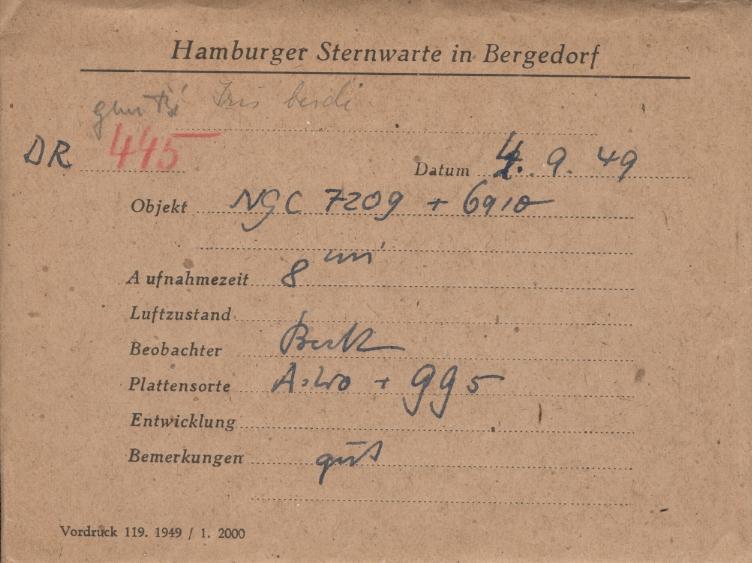 Hamburger Sternwarte in Bergedorf
Iris
DR 445
Datum 4. 9. 49
Objekt NGC 7209 + 6910
Aufnahmezeit 8 min
Luftzustand
Beobachter
Plattensorte + GG5
Entwicklung
Bemerkungen gut
Vordruck 119. 1949 / 1. 2000